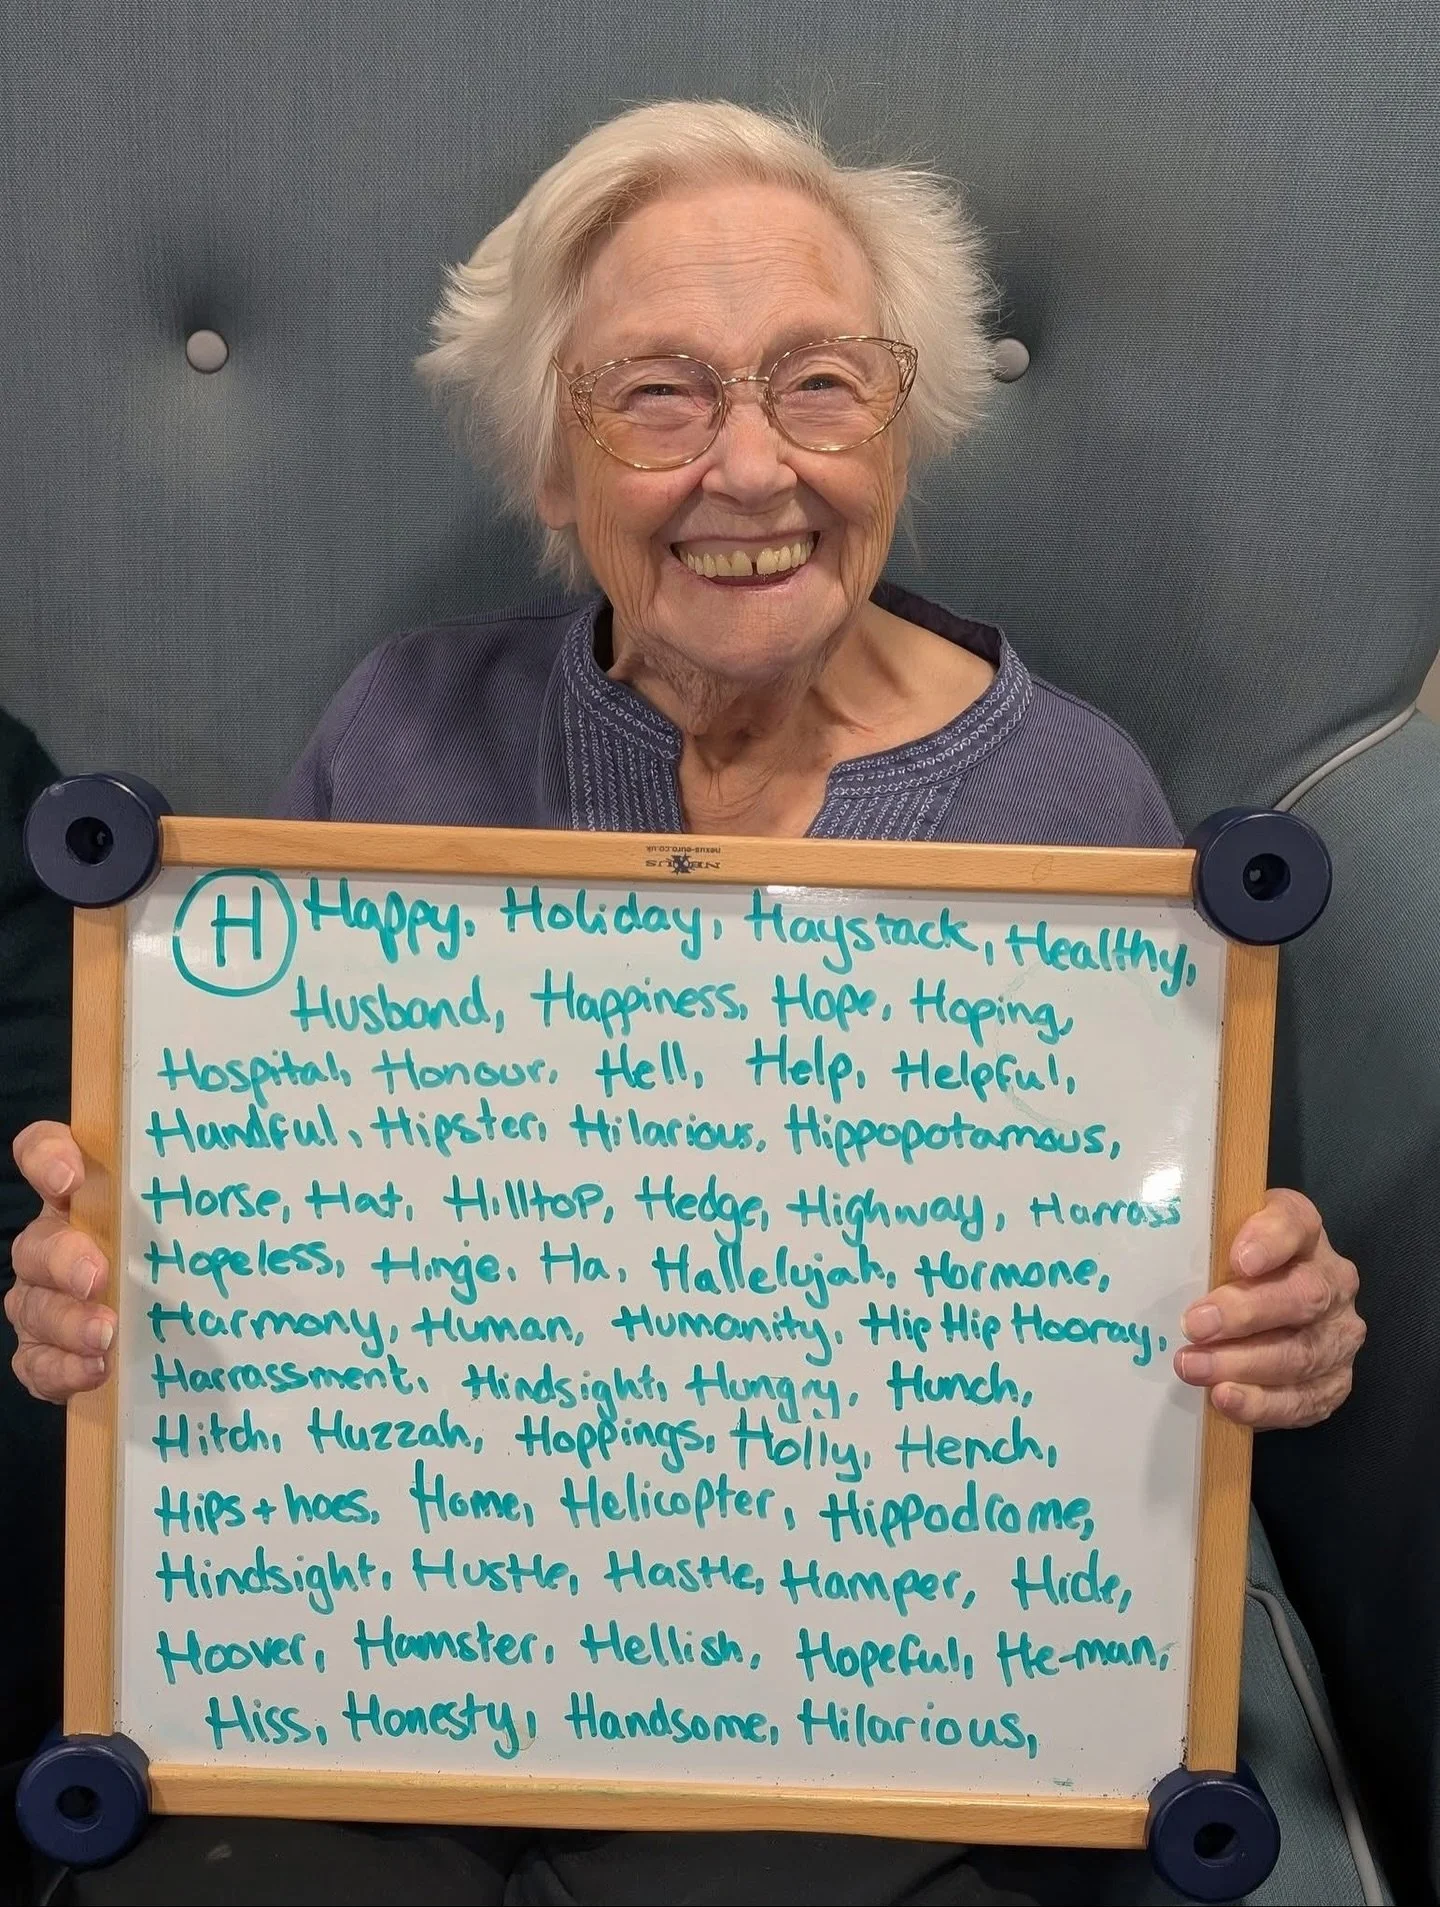 NEXUS
nexus-euro.co.uk
H Happy, Holiday, Haystack, Healthy,
Husband, Happiness, Hope, Hoping,
Hospital, Honour, Hell, Help, Helpful,
Handful, Hipster, Hilarious, Hippopotamous,
Horse, Hat, Hilltop, Hedge, Highway, Harrass
Hopeless, Hinge, Ha, Hallelujah, Hormone,
Harmony, Human, Humanity, Hip Hip Hooray,
Harrassment, Hindsight, Hungry, Hunch,
Hitch, Huzzah, Hoppings, Holly, Hench,
Hips + hoes, Home, Helicopter, Hippodrome,
Hindsight, Hustle, Hastle, Hamper, Hide,
Hoover, Hamster, Hellish, Hopeful, He-man,
Hiss, Honesty, Handsome, Hilarious,